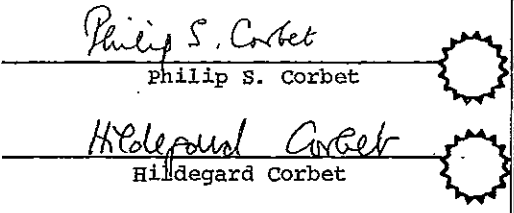 Philip S. Corbet
Philip S. Corbet
Hildegard Corbet
Hildegard Corbet